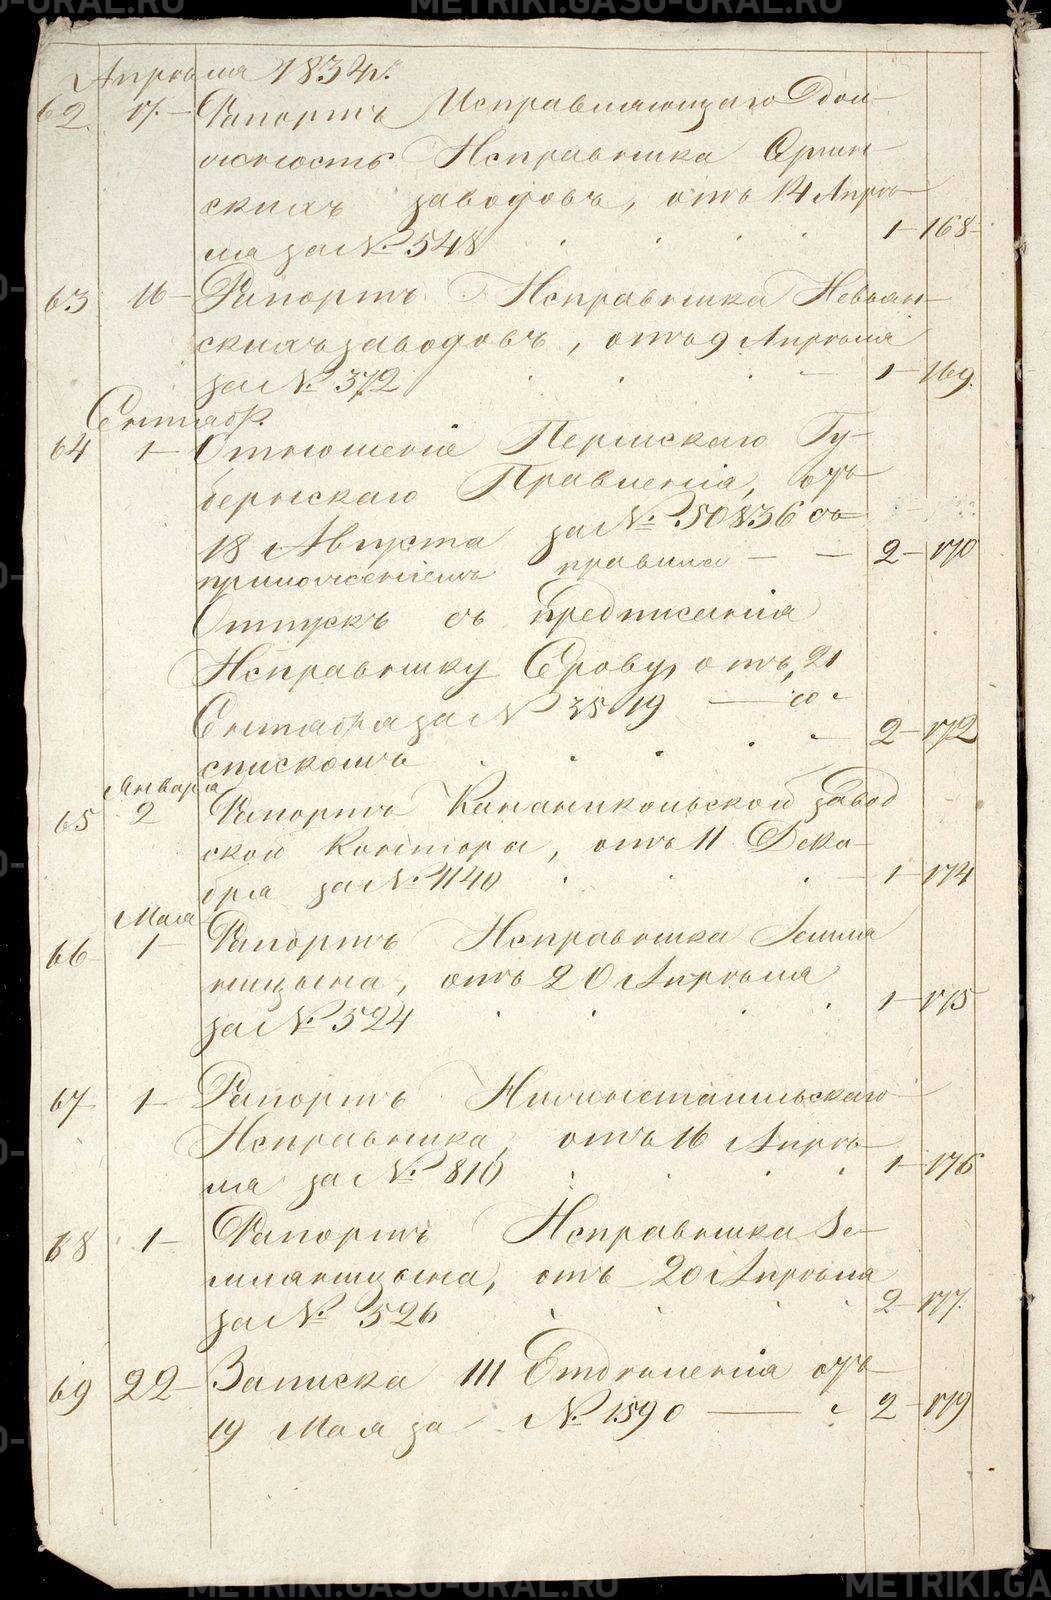 METRIKI.GASU-URAL.RU
Апрѣля 1834 г.
62. 17. Рапортъ Исправляющаго Дол-
жность Исправника Сергин-
скихъ заводовъ, отъ 14 Апрѣ-
ля за № 548 1 168
63 16 Рапортъ Исправника Невьян-
скихъ заводовъ, отъ 9 Апрѣля
за № 372 1 169.
Сентябр.
64 1 Отношеніе Пермскаго Гу-
бернскаго Правленія, отъ
18 Августа за № 50836 съ
приложеніемъ правилъ 2 170
Отпускъ съ предписанія
Исправнику Ерову, отъ 21
Сентября за № 3519 со
спискомъ 2 172
Января
65 2 Рапортъ Кананикольской завод
ской Конторы, отъ 11 Дека-
бря за № 1140 1 174
Мая
66 1 Рапортъ Исправника Земля
ницына, отъ 20 Апрѣля
за № 524 1 175
67 1 Рапортъ Нижнетагильскаго
Исправника, отъ 16 Апрѣ-
ля за № 810 1 176
68 1 Рапортъ Исправника Зе-
мляницына, отъ 20 Апрѣля
за № 526 2 177.
69 22 Записка III Отдѣленія отъ
19 Мая за № 1590 2 179
METRIKI.GASU-URAL.RU
METRIKI.GA